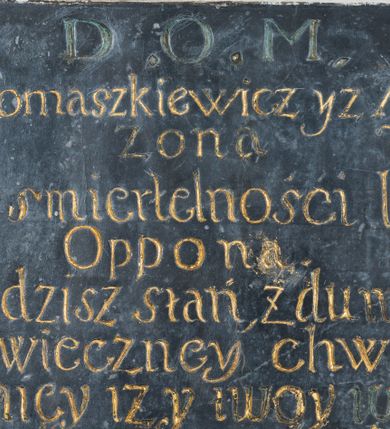 D.O.M.
omaszkiewicz yz
zona
smiertelności
Oppona
dzisz stań, zdum
wieczney chw
nicy iz y twoy